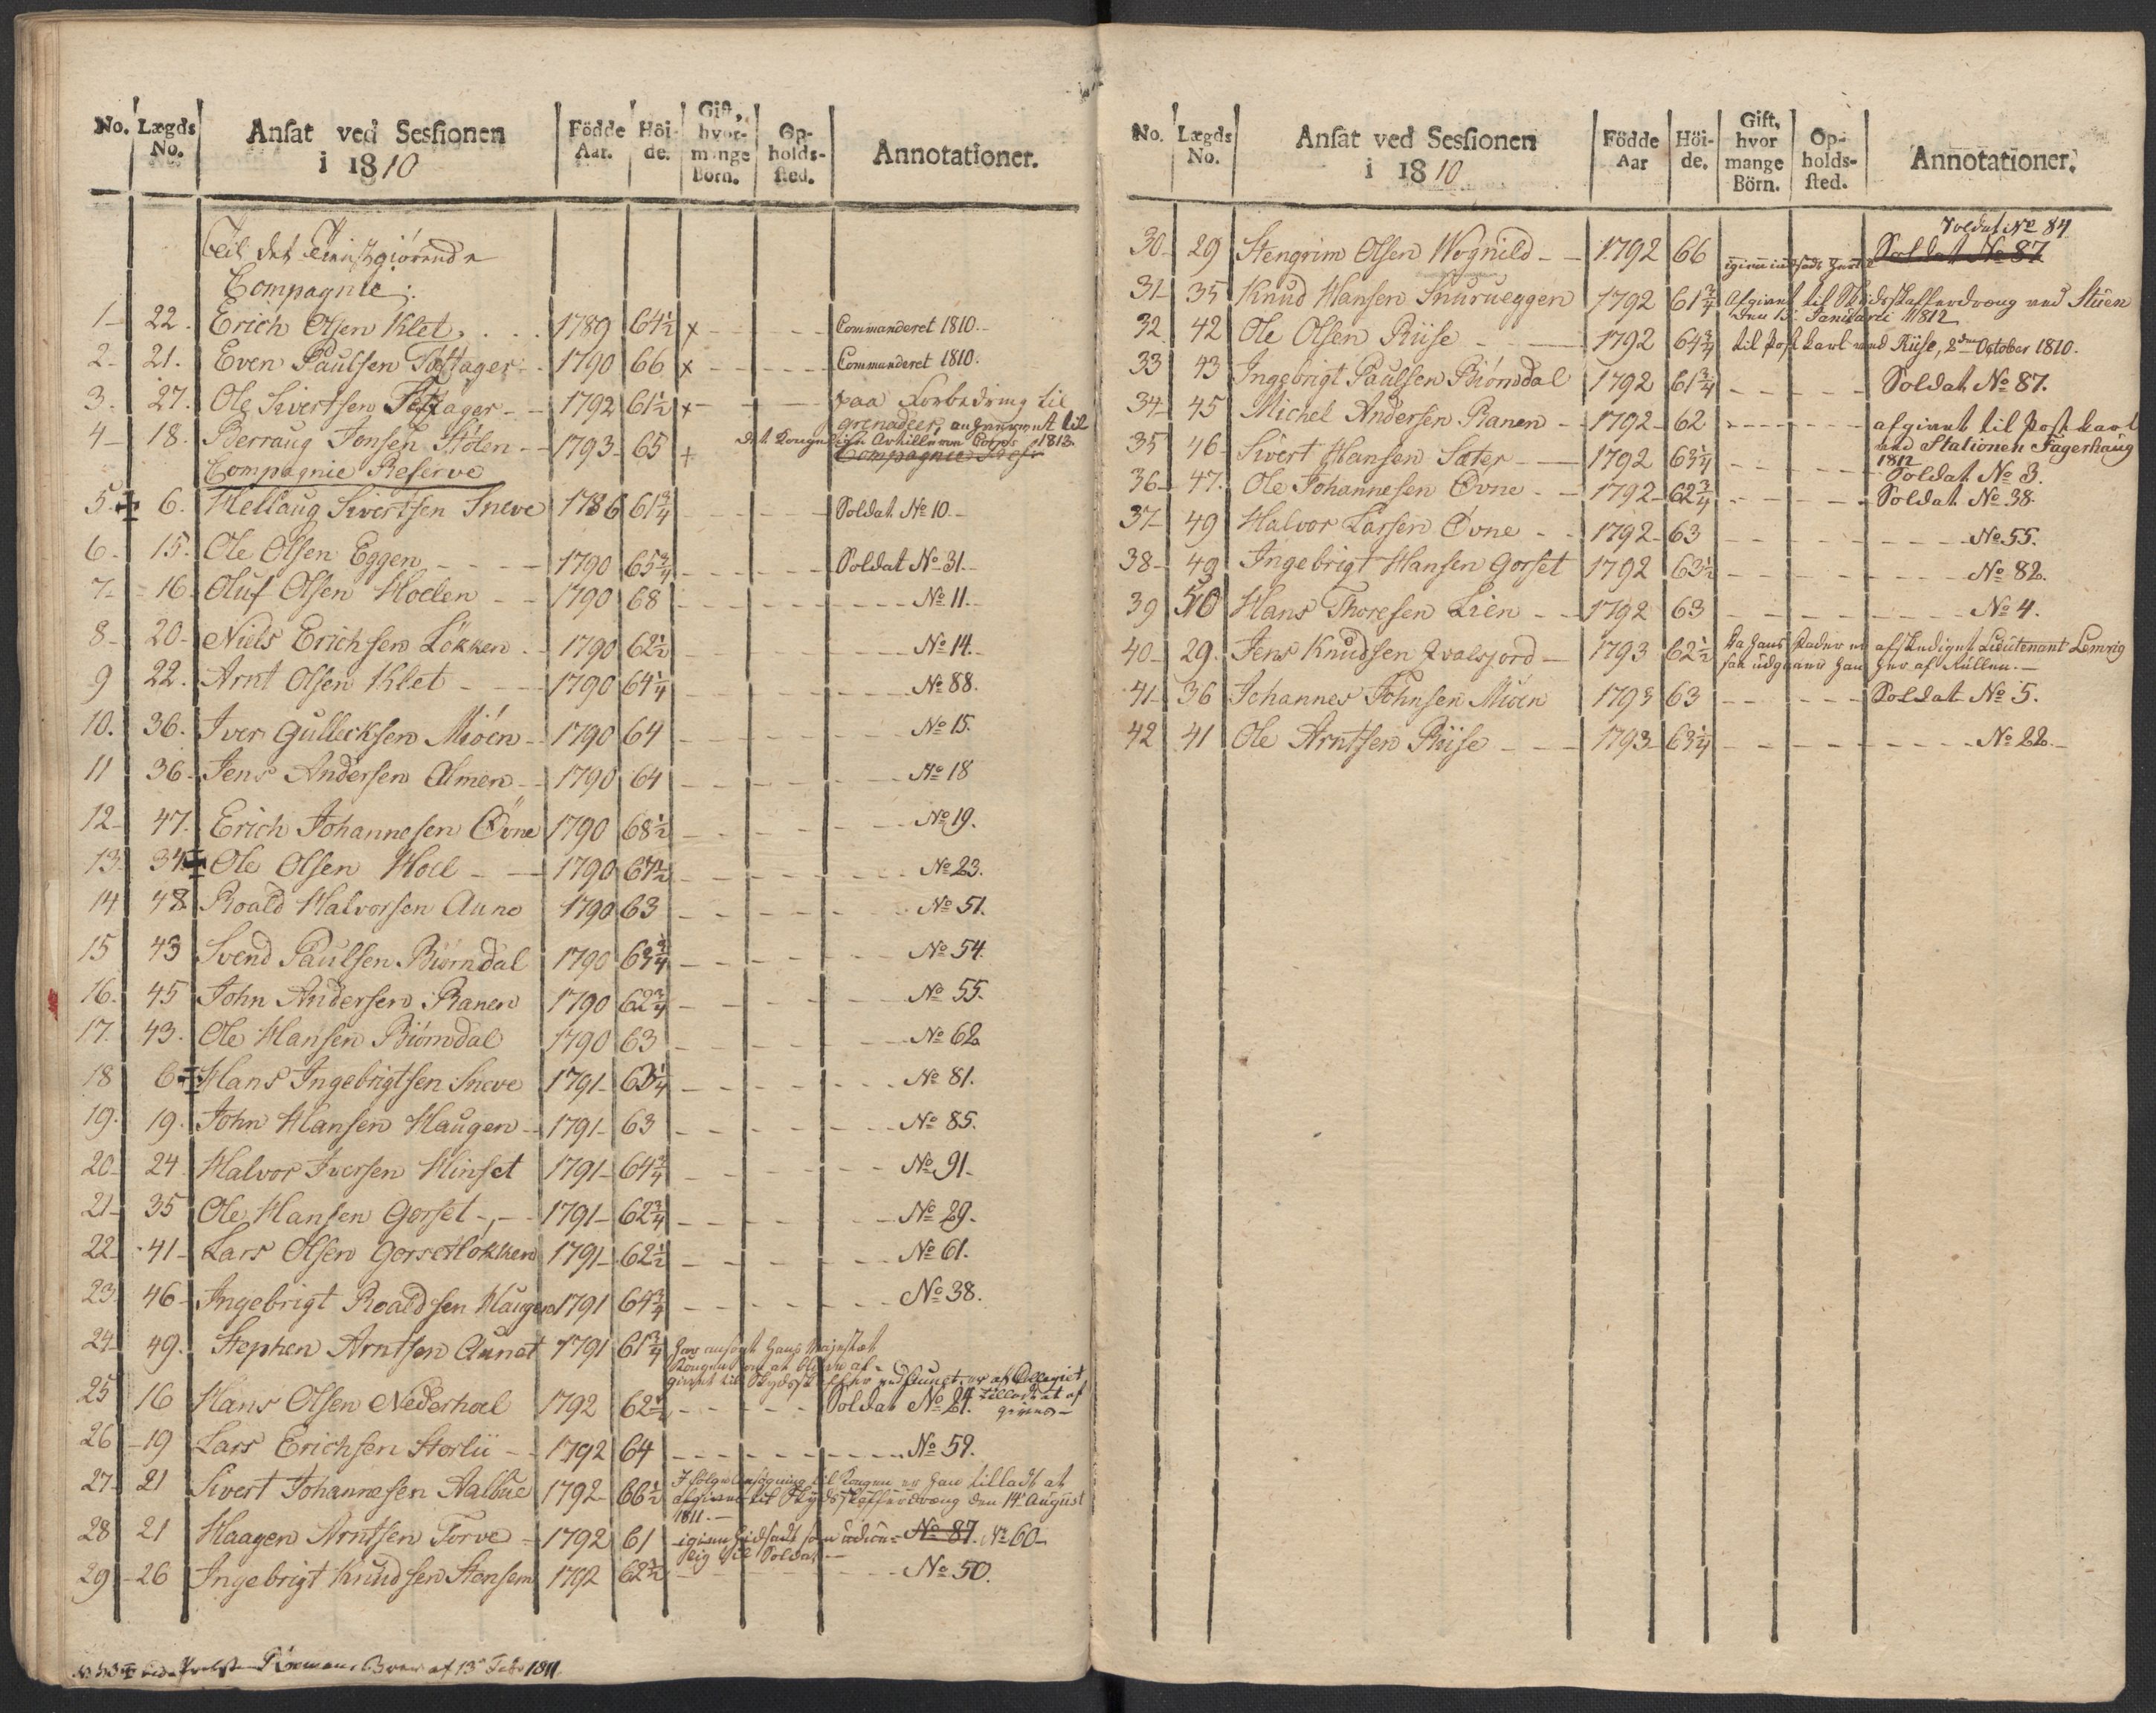 No. Lægds No. Ansat ved Sessionen i 1810 Födde Aar. Höi-de. Gift, hvor-mange Börn. Op-holds-sted. Annotationer.
Til det
Compagnie.
1 22. Erich Olsen Klet 1789 64½ x Commanderet 1810.
2 21. Even Paulsen 1790 66 x Commanderet 1810.
3. 27. Ole Sivertsen 1792 61½ x paa Forbedring til
Grenadeer, antennt til
4 18. Jonsen Stölen 1793 65 + det Artillerie Corps 1813
Compagnie Reserve
5. 6. Hellaug Sivertsen Sneve 1786 61¾ Soldat No 10.
6 15. Ole Olsen Eggen 1790 65¾ Soldat No 31.
7 16. Oluf Olsen Hoelen 1790 68 No 11.
8 20 Niels Erichsen Lökken 1790 62½ No 14.
9 22. Arnt Olsen Klet 1790 64¼ No 88.
10. 36. Iver Gullecksen Miöen 1790 64 No 15.
11 36 Jens Andersen Almen 1790 64 No 18
12 47. Erich Johannesen Övne 1790 68½ No 19.
13. 34 Ole Olsen Hoel 1790 67½ No 23.
14 48 Roald Halvorsen Aune 1790 63 No 51.
15 43 Svend Paulsen Biörndal 1790 63¾ No 54.
16. 45 John Andersen Ranen 1790 62¾ No 55.
17. 43. Ole Hansen Biörndal 1790 63 No 62
18 6 Hans Ingebrigtsen Sneve 1791 63¼ No 81.
19. 19. John Hansen Haugen 1791 63 No 85.
20 24 Halvor Iversen Hinset 1791 64¾ No 91
21 35 Ole Hansen Gorset 1791 62¾ No 29.
22 41 Lars Olsen Gorsetlökken 1791 62½ No 61.
23 46 Ingebrigt Roaldsen Haugen 1791 64¾ No 38.
24 49. Stephen Arntsen Aunet 1791 61¾ Har ansögt Hans Majestæt
Kongen om at blive af-
givet til Skydsskaffer ved Aunet, er af Collegiet
25 16 Hans Olsen Nederhoel 1792 62½ Soldat No 24. tilladt at af
gives
26 19 Lars Erichsen Storlii 1792 64 No 59.
27 21 Sivert Johannesen Aalbue 1792 66½ I fölge Ansögning til Kongen er han tilladt at
afgives til Skydsskafferdreng den 14 August
1811.
28 21 Haagen Arntsen Torve 1792 61 igien indsadt som No 87. No 60
lig til Soldat
29 26 Ingebrigt Knudsen Stensem 1792 62½ No 50.
af 13 Febr 1811.
No. Lægds No. Ansat ved Sessionen i 1810 Födde Aar Höi-de. Gift, hvor mange Börn. Op-holds-sted. Annotationer.
Soldat No 84
30 29 Stengrim Olsen Wognild 1792 66 igien Soldat No 87
31 35 Knud Hansen Snurueggen 1792 61¾ Afgivet til Skydsskafferdreng ved Stuen
den 13 Januarii 1812
32. 42 Ole Olsen Riise 1792 64¾ til Postkarl ved Riise, 2den October 1810.
33 43 Ingebrigt Paulsen Biörndal 1792 61¾ Soldat No 87.
34 45 Michel Andersen Ranen 1792 62 afgivet til Postkarl
ved Stationen Fagerhaug
35 46 Sivert Hansen Sæter 1792 63¼ 1812
Soldat No 3.
36 47. Ole Johannesen Övne 1792 62¾ Soldat No 38.
37 49 Halvor Larsen Övne 1792 63 No 55.
38 49 Ingebrigt Hansen Gorset 1792 63½ No 82.
39 50 Hans Thoresen Lien 1792 63 No 4.
40 29. Jens Knudsen 1793 62½ da hans Fader er afskediget Lieutenant
saa udgaaer han her af Rullen.
41 36 Johannes Johnsen Miöen 1793 63 Soldat No 5.
42 41 Ole Arntsen Riise 1793 63¼ No 22.